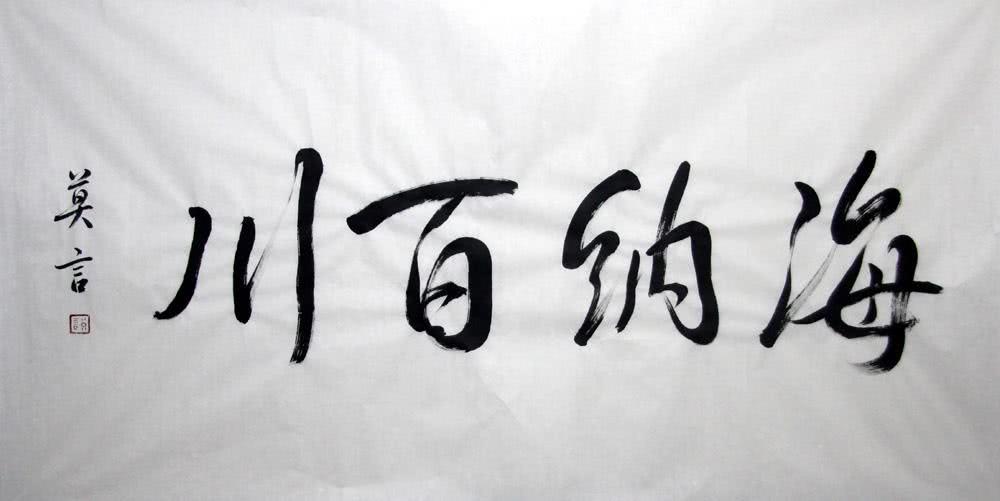 海纳百川
莫言